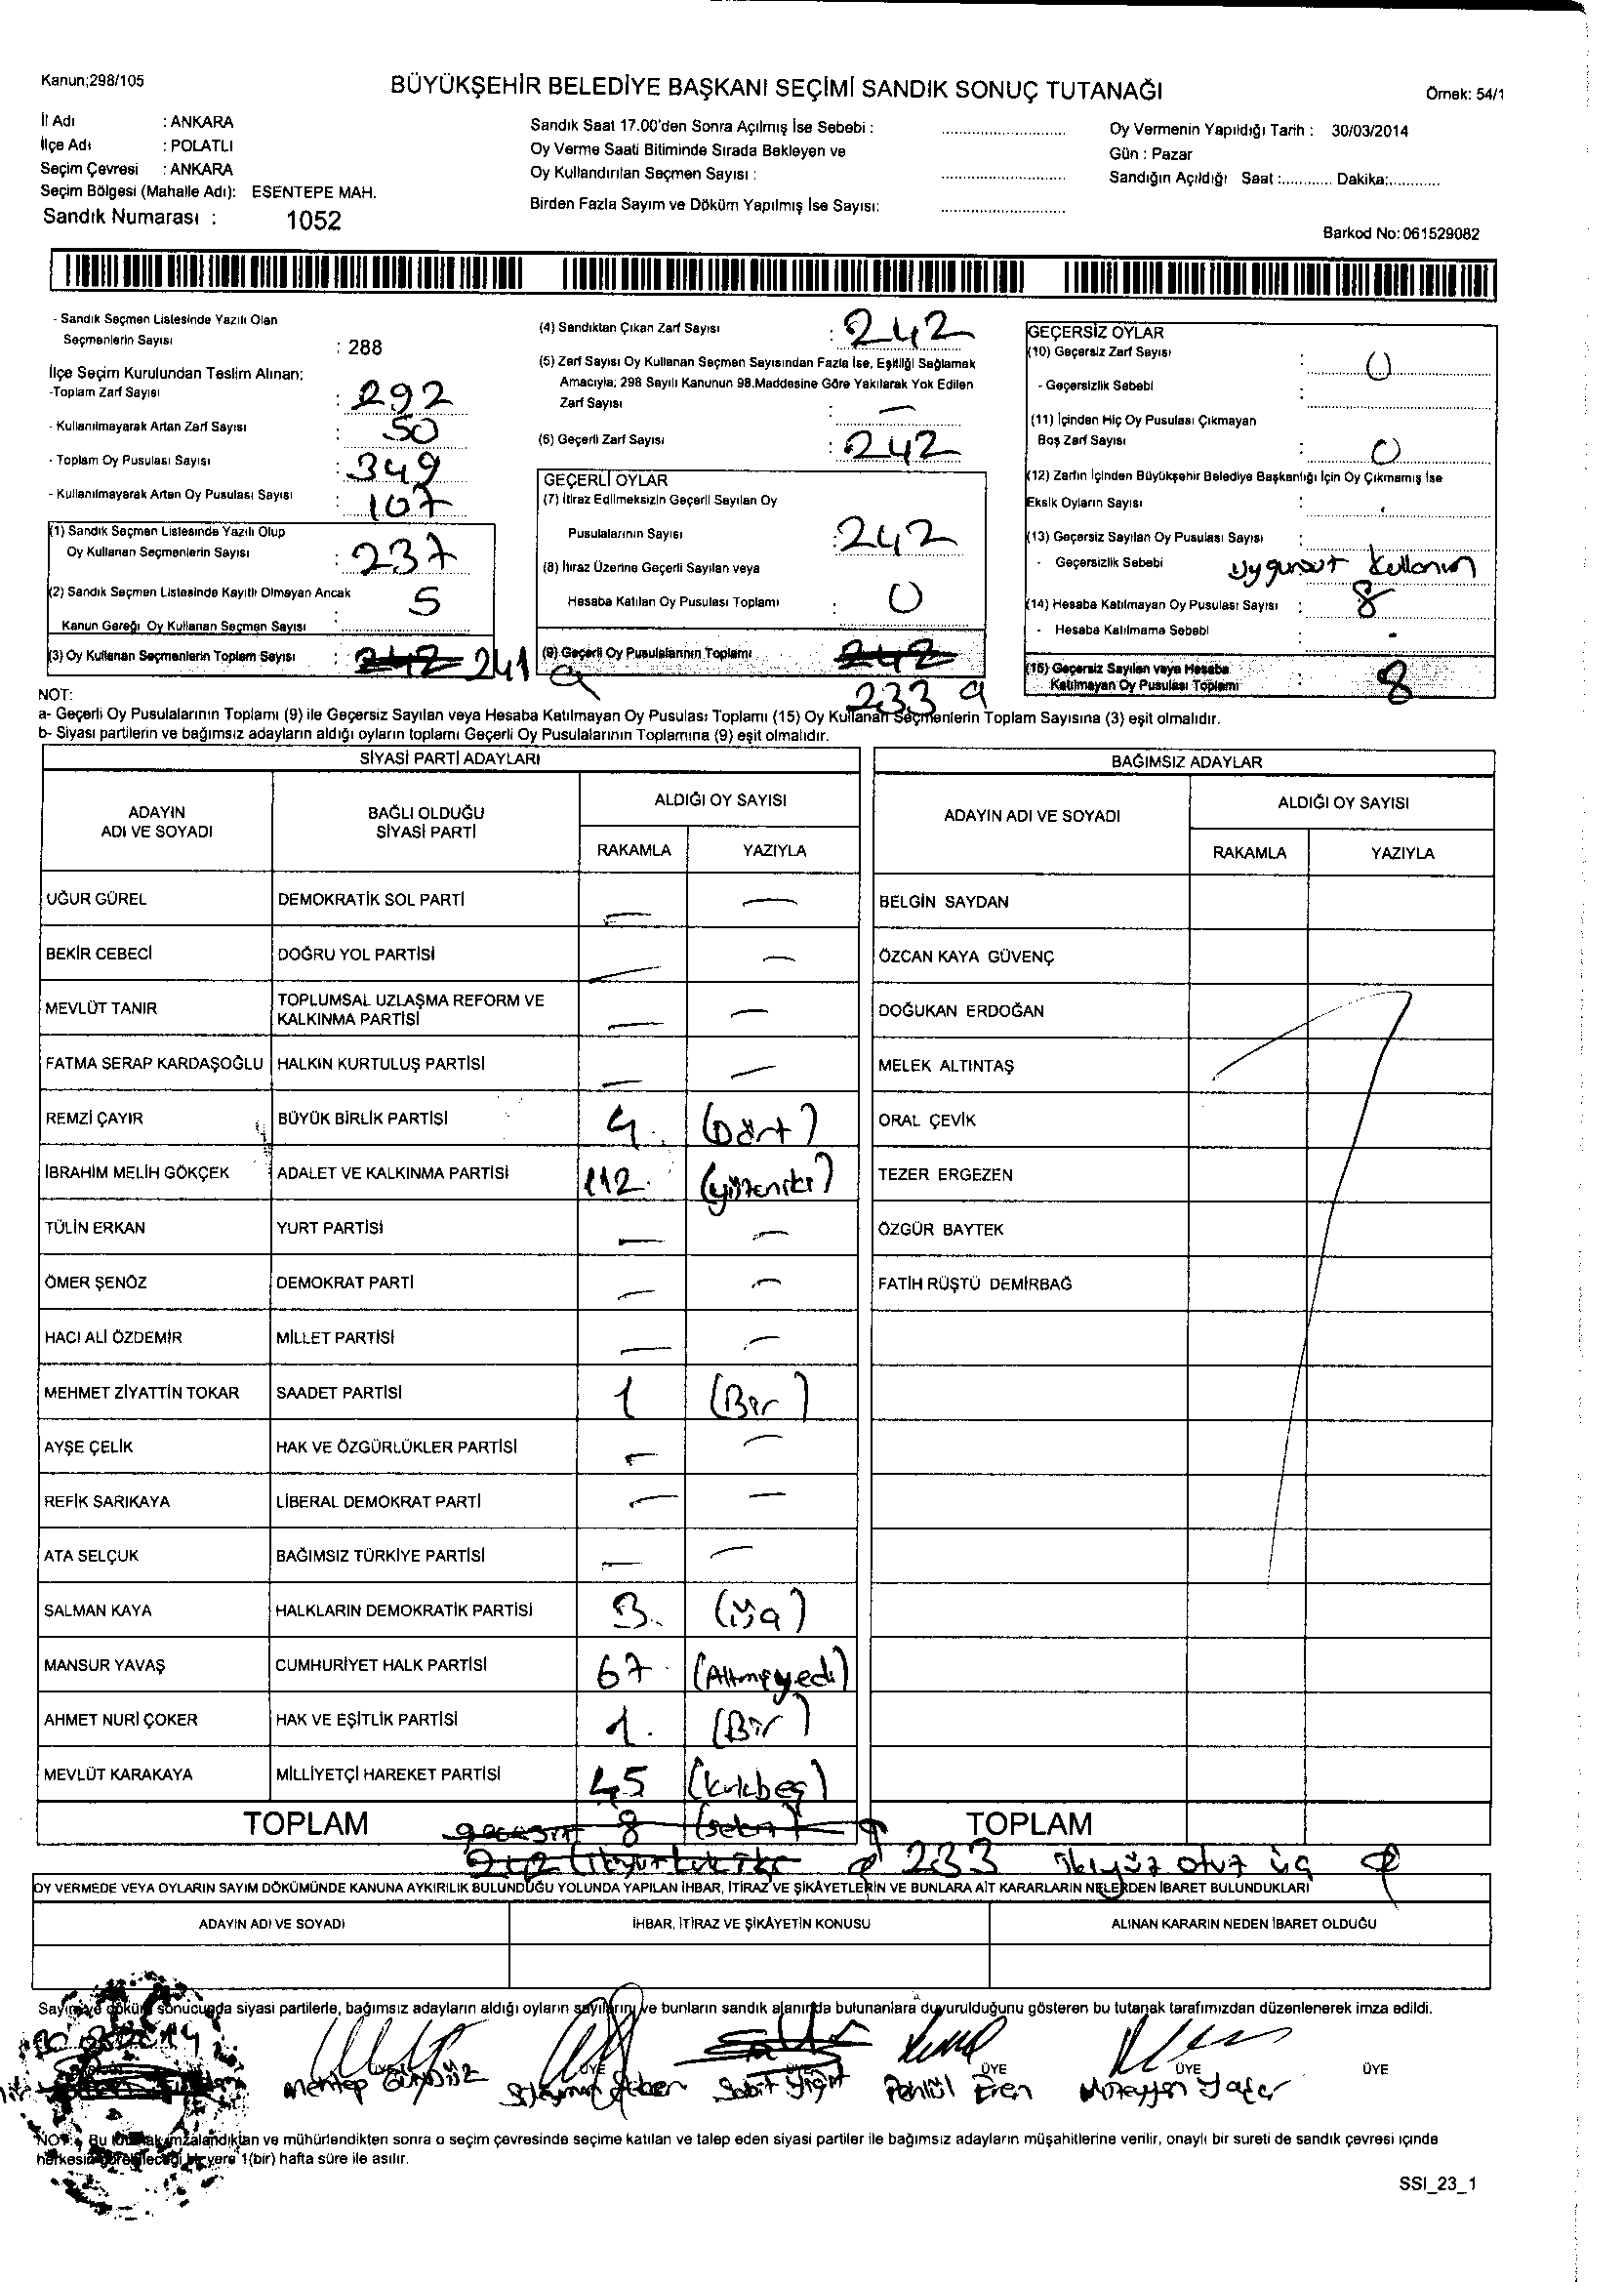 Kanun;298/105
BÜYÜKŞEHİR BELEDİYE BAŞKANI SEÇİMİ SANDIK SONUÇ TUTANAĞI
Örnek: 54/1
İl Adı : ANKARA
İlçe Adı : POLATLI
Seçim Çevresi : ANKARA
Seçim Bölgesi (Mahalle Adı): ESENTEPE MAH.
Sandık Numarası : 1052
Sandık Saat 17.00'den Sonra Açılmış İse Sebebi :
Oy Verme Saati Bitiminde Sırada Bekleyen ve
Oy Kullandırılan Seçmen Sayısı :
Birden Fazla Sayım ve Döküm Yapılmış İse Sayısı:
Oy Vermenin Yapıldığı Tarih : 30/03/2014
Gün : Pazar
Sandığın Açıldığı Saat :............ Dakika:............
Barkod No: 061529082
- Sandık Seçmen Listesinde Yazılı Olan
Seçmenlerin Sayısı : 288
İlçe Seçim Kurulundan Teslim Alınan;
-Toplam Zarf Sayısı : 292
- Kullanılmayarak Artan Zarf Sayısı : 50
- Toplam Oy Pusulası Sayısı : 349
- Kullanılmayarak Artan Oy Pusulası Sayısı : 107
(1) Sandık Seçmen Listesinde Yazılı Olup
Oy Kullanan Seçmenlerin Sayısı : 237
(2) Sandık Seçmen Listesinde Kayıtlı Olmayan Ancak
Kanun Gereği Oy Kullanan Seçmen Sayısı : 5
(3) Oy Kullanan Seçmenlerin Toplam Sayısı : 242 241
(4) Sandıktan Çıkan Zarf Sayısı : 242
(5) Zarf Sayısı Oy Kullanan Seçmen Sayısından Fazla İse, Eşitliği Sağlamak
Amacıyla; 298 Sayılı Kanunun 98.Maddesine Göre Yakılarak Yok Edilen
Zarf Sayısı : —
(6) Geçerli Zarf Sayısı : 242
GEÇERLİ OYLAR
(7) İtiraz Edilmeksizin Geçerli Sayılan Oy
Pusulalarının Sayısı : 242
(8) İtiraz Üzerine Geçerli Sayılan veya
Hesaba Katılan Oy Pusulası Toplamı : 0
(9) Geçerli Oy Pusulalarının Toplamı : 242
233
GEÇERSİZ OYLAR
(10) Geçersiz Zarf Sayısı : 0
- Geçersizlik Sebebi :
(11) İçinden Hiç Oy Pusulası Çıkmayan
Boş Zarf Sayısı : 0
(12) Zarfın İçinden Büyükşehir Belediye Başkanlığı İçin Oy Çıkmamış İse
Eksik Oyların Sayısı :
(13) Geçersiz Sayılan Oy Pusulası Sayısı :
- Geçersizlik Sebebi
(14) Hesaba Katılmayan Oy Pusulası Sayısı : 8
- Hesaba Katılmama Sebebi : -
(15) Geçersiz Sayılan veya Hesaba
Katılmayan Oy Pusulası Toplamı : 8
NOT:
a- Geçerli Oy Pusulalarının Toplamı (9) ile Geçersiz Sayılan veya Hesaba Katılmayan Oy Pusulası Toplamı (15) Oy Kullanan Seçmenlerin Toplam Sayısına (3) eşit olmalıdır.
b- Siyasi partilerin ve bağımsız adayların aldığı oyların toplamı Geçerli Oy Pusulalarının Toplamına (9) eşit olmalıdır.
SİYASİ PARTİ ADAYLARI
ADAYIN ADI VE SOYADI BAĞLI OLDUĞU SİYASİ PARTİ ALDIĞI OY SAYISI
RAKAMLA YAZIYLA
UĞUR GÜREL DEMOKRATİK SOL PARTİ — —
BEKİR CEBECİ DOĞRU YOL PARTİSİ — —
MEVLÜT TANIR TOPLUMSAL UZLAŞMA REFORM VE KALKINMA PARTİSİ — —
FATMA SERAP KARDAŞOĞLU HALKIN KURTULUŞ PARTİSİ — —
REMZİ ÇAYIR BÜYÜK BİRLİK PARTİSİ 4 (Dört)
İBRAHİM MELİH GÖKÇEK ADALET VE KALKINMA PARTİSİ 112
TÜLİN ERKAN YURT PARTİSİ — —
ÖMER ŞENÖZ DEMOKRAT PARTİ — —
HACI ALİ ÖZDEMİR MİLLET PARTİSİ — —
MEHMET ZİYATTİN TOKAR SAADET PARTİSİ 1 (Bir)
AYŞE ÇELİK HAK VE ÖZGÜRLÜKLER PARTİSİ — —
REFİK SARIKAYA LİBERAL DEMOKRAT PARTİ — —
ATA SELÇUK BAĞIMSIZ TÜRKİYE PARTİSİ — —
SALMAN KAYA HALKLARIN DEMOKRATİK PARTİSİ 3 (üç)
MANSUR YAVAŞ CUMHURİYET HALK PARTİSİ 67 (Altmışyedi)
AHMET NURİ ÇOKER HAK VE EŞİTLİK PARTİSİ 1 (Bir)
MEVLÜT KARAKAYA MİLLİYETÇİ HAREKET PARTİSİ 45 (kırkbeş)
TOPLAM 8
242 233 ikiyüz otuz üç
BAĞIMSIZ ADAYLAR
ADAYIN ADI VE SOYADI ALDIĞI OY SAYISI
RAKAMLA YAZIYLA
BELGİN SAYDAN
ÖZCAN KAYA GÜVENÇ
DOĞUKAN ERDOĞAN
MELEK ALTINTAŞ
ORAL ÇEVİK
TEZER ERGEZEN
ÖZGÜR BAYTEK
FATİH RÜŞTÜ DEMİRBAĞ
TOPLAM
OY VERMEDE VEYA OYLARIN SAYIM DÖKÜMÜNDE KANUNA AYKIRILIK BULUNDUĞU YOLUNDA YAPILAN İHBAR, İTİRAZ VE ŞİKAYETLERİN VE BUNLARA AİT KARARLARIN NELERDEN İBARET BULUNDUKLARI
ADAYIN ADI VE SOYADI İHBAR, İTİRAZ VE ŞİKÂYETİN KONUSU ALINAN KARARIN NEDEN İBARET OLDUĞU
Sayım ve döküm sonucunda siyasi partilerle, bağımsız adayların aldığı oyların sayılarını ve bunların sandık alanında bulunanlara duyurulduğunu gösteren bu tutanak tarafımızdan düzenlenerek imza edildi.
ÜYE ÜYE ÜYE ÜYE ÜYE ÜYE
Sabit Yiğit
NOT : Bu tutanak imzalandıktan ve mühürlendikten sonra o seçim çevresinde seçime katılan ve talep eden siyasi partiler ile bağımsız adayların müşahitlerine verilir, onaylı bir sureti de sandık çevresi içinde
herkesin görebileceği bir yere 1(bir) hafta süre ile asılır.
SSI_23_1